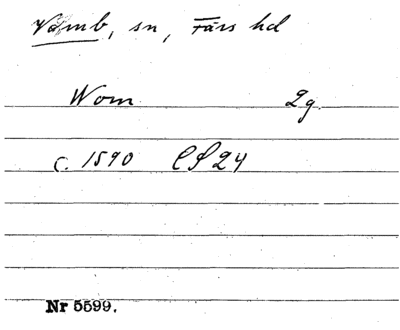 Vamb, sn, Färs hd
Wom 2g.
c. 1590 CS 24
Nr 5599.